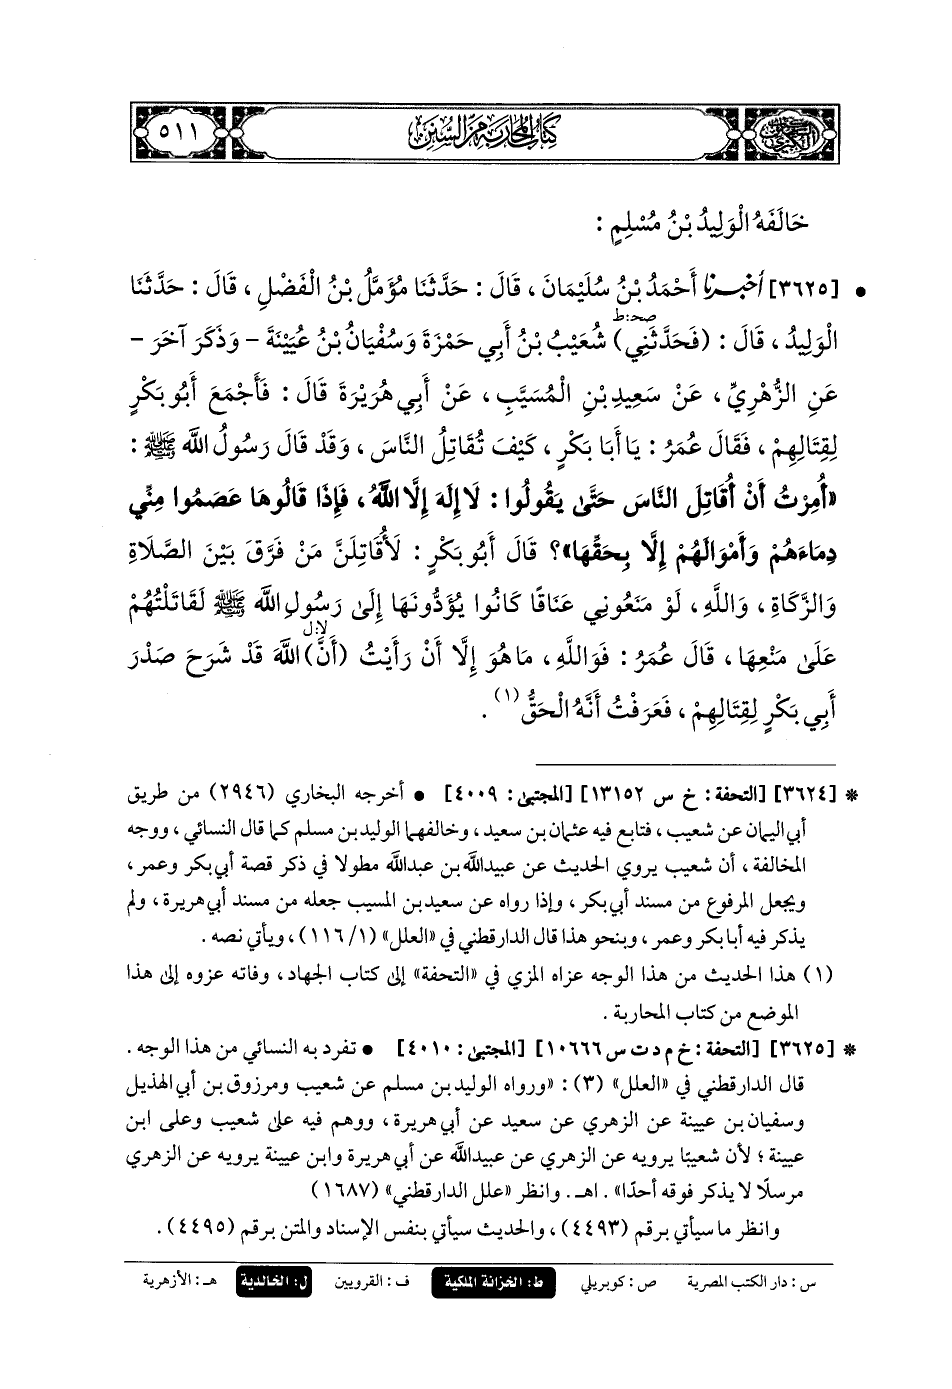 كتاب المحاربة من السنن
٥١١
خَالَفَهُ الْوَلِيدُ بْنُ مُسْلِمٍ :
• [٣٦٢٥] أَخْبَرَنَا أَحْمَدُ بْنُ سُلَيْمَانَ ، قَالَ : حَدَّثَنَا مُؤَمَّلُ بْنُ الْفَضْلِ ، قَالَ : حَدَّثَنَا
صحـ:ط
الْوَلِيدُ ، قَالَ : (فَحَدَّثَنِي) شُعَيْبُ بْنُ أَبِي حَمْزَةَ وَسُفْيَانُ بْنُ عُيَيْنَةَ - وَذَكَرَ آخَرَ -
عَنِ الزُّهْرِيِّ ، عَنْ سَعِيدِ بْنِ الْمُسَيَّبِ ، عَنْ أَبِي هُرَيْرَةَ قَالَ : فَأَجْمَعَ أَبُو بَكْرٍ
لِقِتَالِهِمْ ، فَقَالَ عُمَرُ : يَا أَبَا بَكْرٍ ، كَيْفَ تُقَاتِلُ النَّاسَ ، وَقَدْ قَالَ رَسُولُ اللَّه ﷺ :
«أُمِرْتُ أَنْ أُقَاتِلَ النَّاسَ حَتَّىٰ يَقُولُوا : لَا إِلَهَ إِلَّا اللَّهُ ، فَإِذَا قَالُوهَا عَصَمُوا مِنِّي
دِمَاءَهُمْ وَأَمْوَالَهُمْ إِلَّا بِحَقِّهَا»؟ قَالَ أَبُو بَكْرٍ : لَأُقَاتِلَنَّ مَنْ فَرَّقَ بَيْنَ الصَّلَاةِ
وَالزَّكَاةِ ، وَاللَّهِ ، لَوْ مَنَعُونِي عَنَاقًا كَانُوا يُؤَدُّونَهَا إِلَىٰ رَسُولِ اللَّه ﷺ لَقَاتَلْتُهُمْ
لا:ل
عَلَىٰ مَنْعِهَا ، قَالَ عُمَرُ : فَوَاللَّهِ ، مَا هُوَ إِلَّا أَنْ رَأَيْتُ (أَنَّ) اللَّهَ قَدْ شَرَحَ صَدْرَ
أَبِي بَكْرٍ لِقِتَالِهِمْ ، فَعَرَفْتُ أَنَّهُ الْحَقُّ (١) .
* [٣٦٢٤] [التحفة : خ س ١٣١٥٢] [المجتبى : ٤٠٠٩] • أخرجه البخاري (٢٩٤٦) من طريق
أبي اليمان عن شعيب ، فتابع فيه عثمان بن سعيد ، وخالفهما الوليد بن مسلم كما قال النسائي ، ووجه
المخالفة ، أن شعيب يروي الحديث عن عبيدالله بن عبدالله مطولا في ذكر قصة أبي بكر وعمر ،
ويجعل المرفوع من مسند أبي بكر ، وإذا رواه عن سعيد بن المسيب جعله من مسند أبي هريرة ، ولم
يذكر فيه أبا بكر وعمر ، وبنحو هذا قال الدارقطني في «العلل» (١/ ١١٦) ، ويأتي نصه .
(١) هذا الحديث من هذا الوجه عزاه المزي في «التحفة» إلى كتاب الجهاد ، وفاته عزوه إلى هذا
الموضع من كتاب المحاربة .
* [٣٦٢٥] [التحفة : خ م د ت س ١٠٦٦٦] [المجتبى : ٤٠١٠] • تفرد به النسائي من هذا الوجه .
قال الدارقطني في «العلل» (٣) : «ورواه الوليد بن مسلم عن شعيب ومرزوق بن أبي الهذيل
وسفيان بن عيينة عن الزهري عن سعيد عن أبي هريرة ، ووهم فيه على شعيب وعلى ابن
عيينة ؛ لأن شعيبًا يرويه عن الزهري عن عبيدالله عن أبي هريرة وابن عيينة يرويه عن الزهري
مرسلًا لا يذكر فوقه أحدًا» . اهـ . وانظر «علل الدارقطني» (١٦٨٧)
وانظر ما سيأتي برقم (٤٤٩٣) ، والحديث سيأتي بنفس الإسناد والمتن برقم (٤٤٩٥) .
س : دار الكتب المصرية ص : كوبريلي ط : الخزانة الملكية ف : القرويين ل : الخالدية هـ : الأزهرية